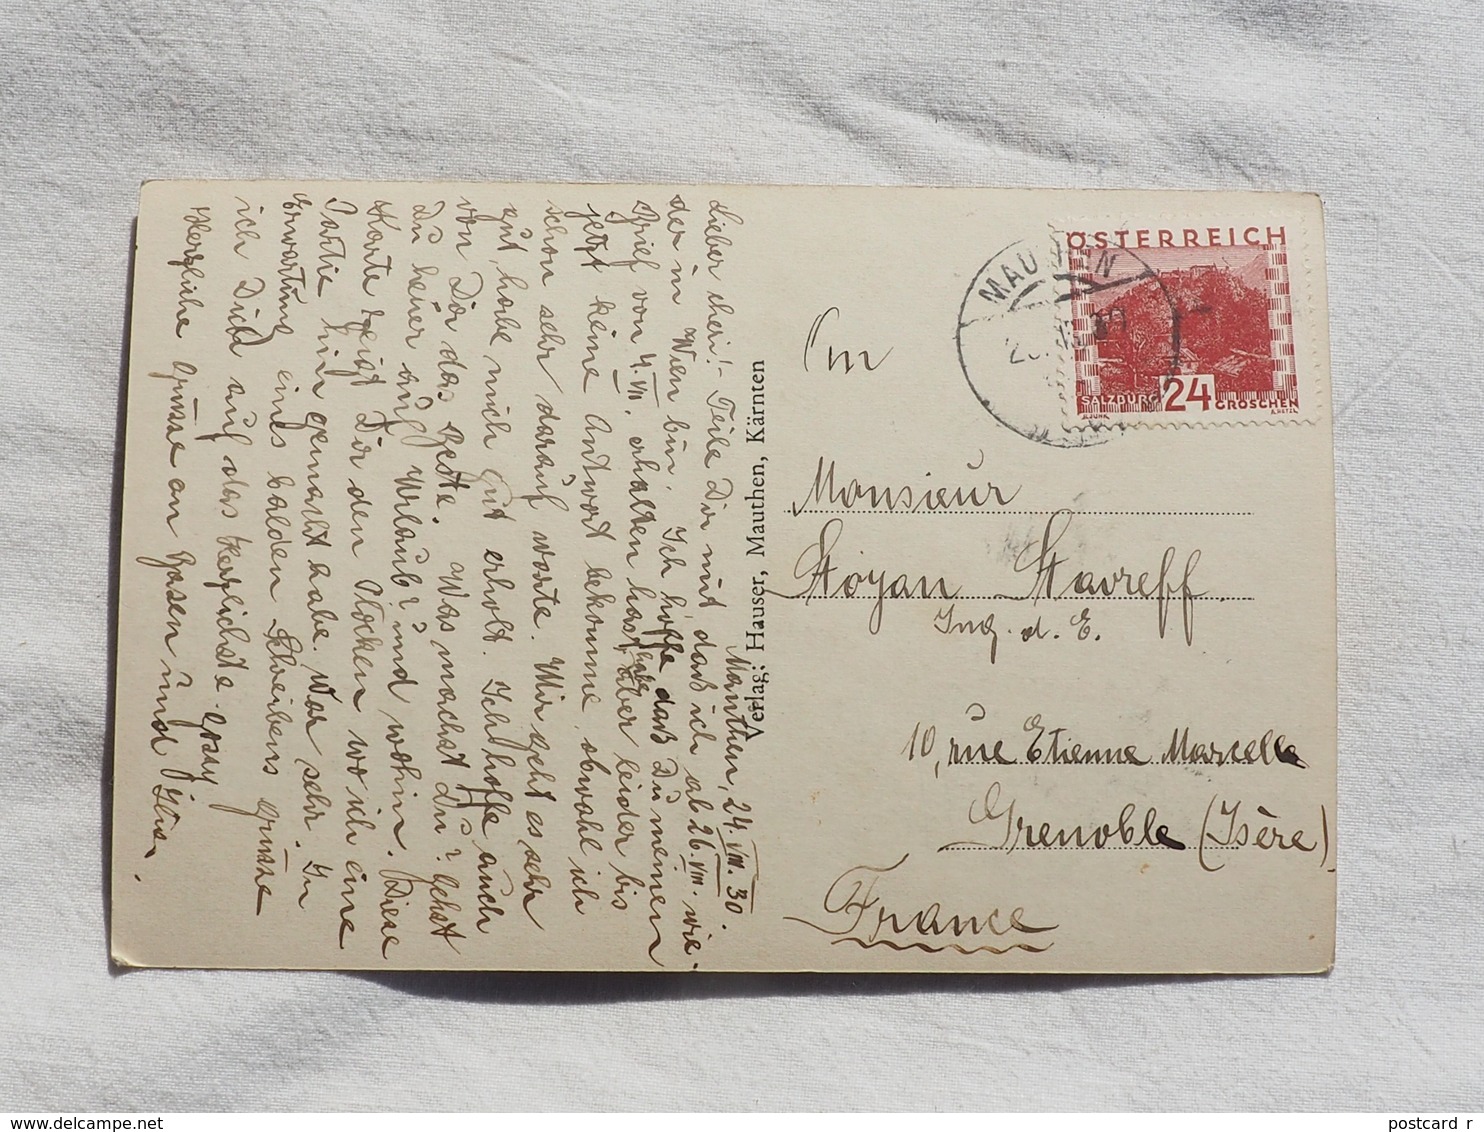 Mauthen, 24.VIII.30.
Lieber cheri! Teile Dir mit, daß ich ab 26.VIII. wie-
der in Wien bin. Ich hoffe daß Du meinen
Brief von 4.VIII. erhalten hast, aber leider bis
jetzt keine Antwort bekomme, obwohl ich
schon sehr darauf warte. Mir geht es sehr
gut, habe mich gut erholt. Ich hoffe auch
von Dir das Beste. Was machst Du? Gehst
Du heuer auf Urlaub? und wohin. Diese
Karte zeigt Dir den Plocken wo ich eine
Partie hin gemacht habe. War sehr. In
Erwartung eines balden Schreibens grüsse
ich Dich auf das herzlichste
Herzliche Grüsse an und
Verlag: Hauser, Mauthen, Kärnten
ÖSTERREICH
SALZBURG 24 GROSCHEN
MAUTHEN
An
Monsieur
Stoyan Stavreff
Ing. d. E.
10, rue Etienne Marcelle
Grenoble (Isère)
France
postcard r